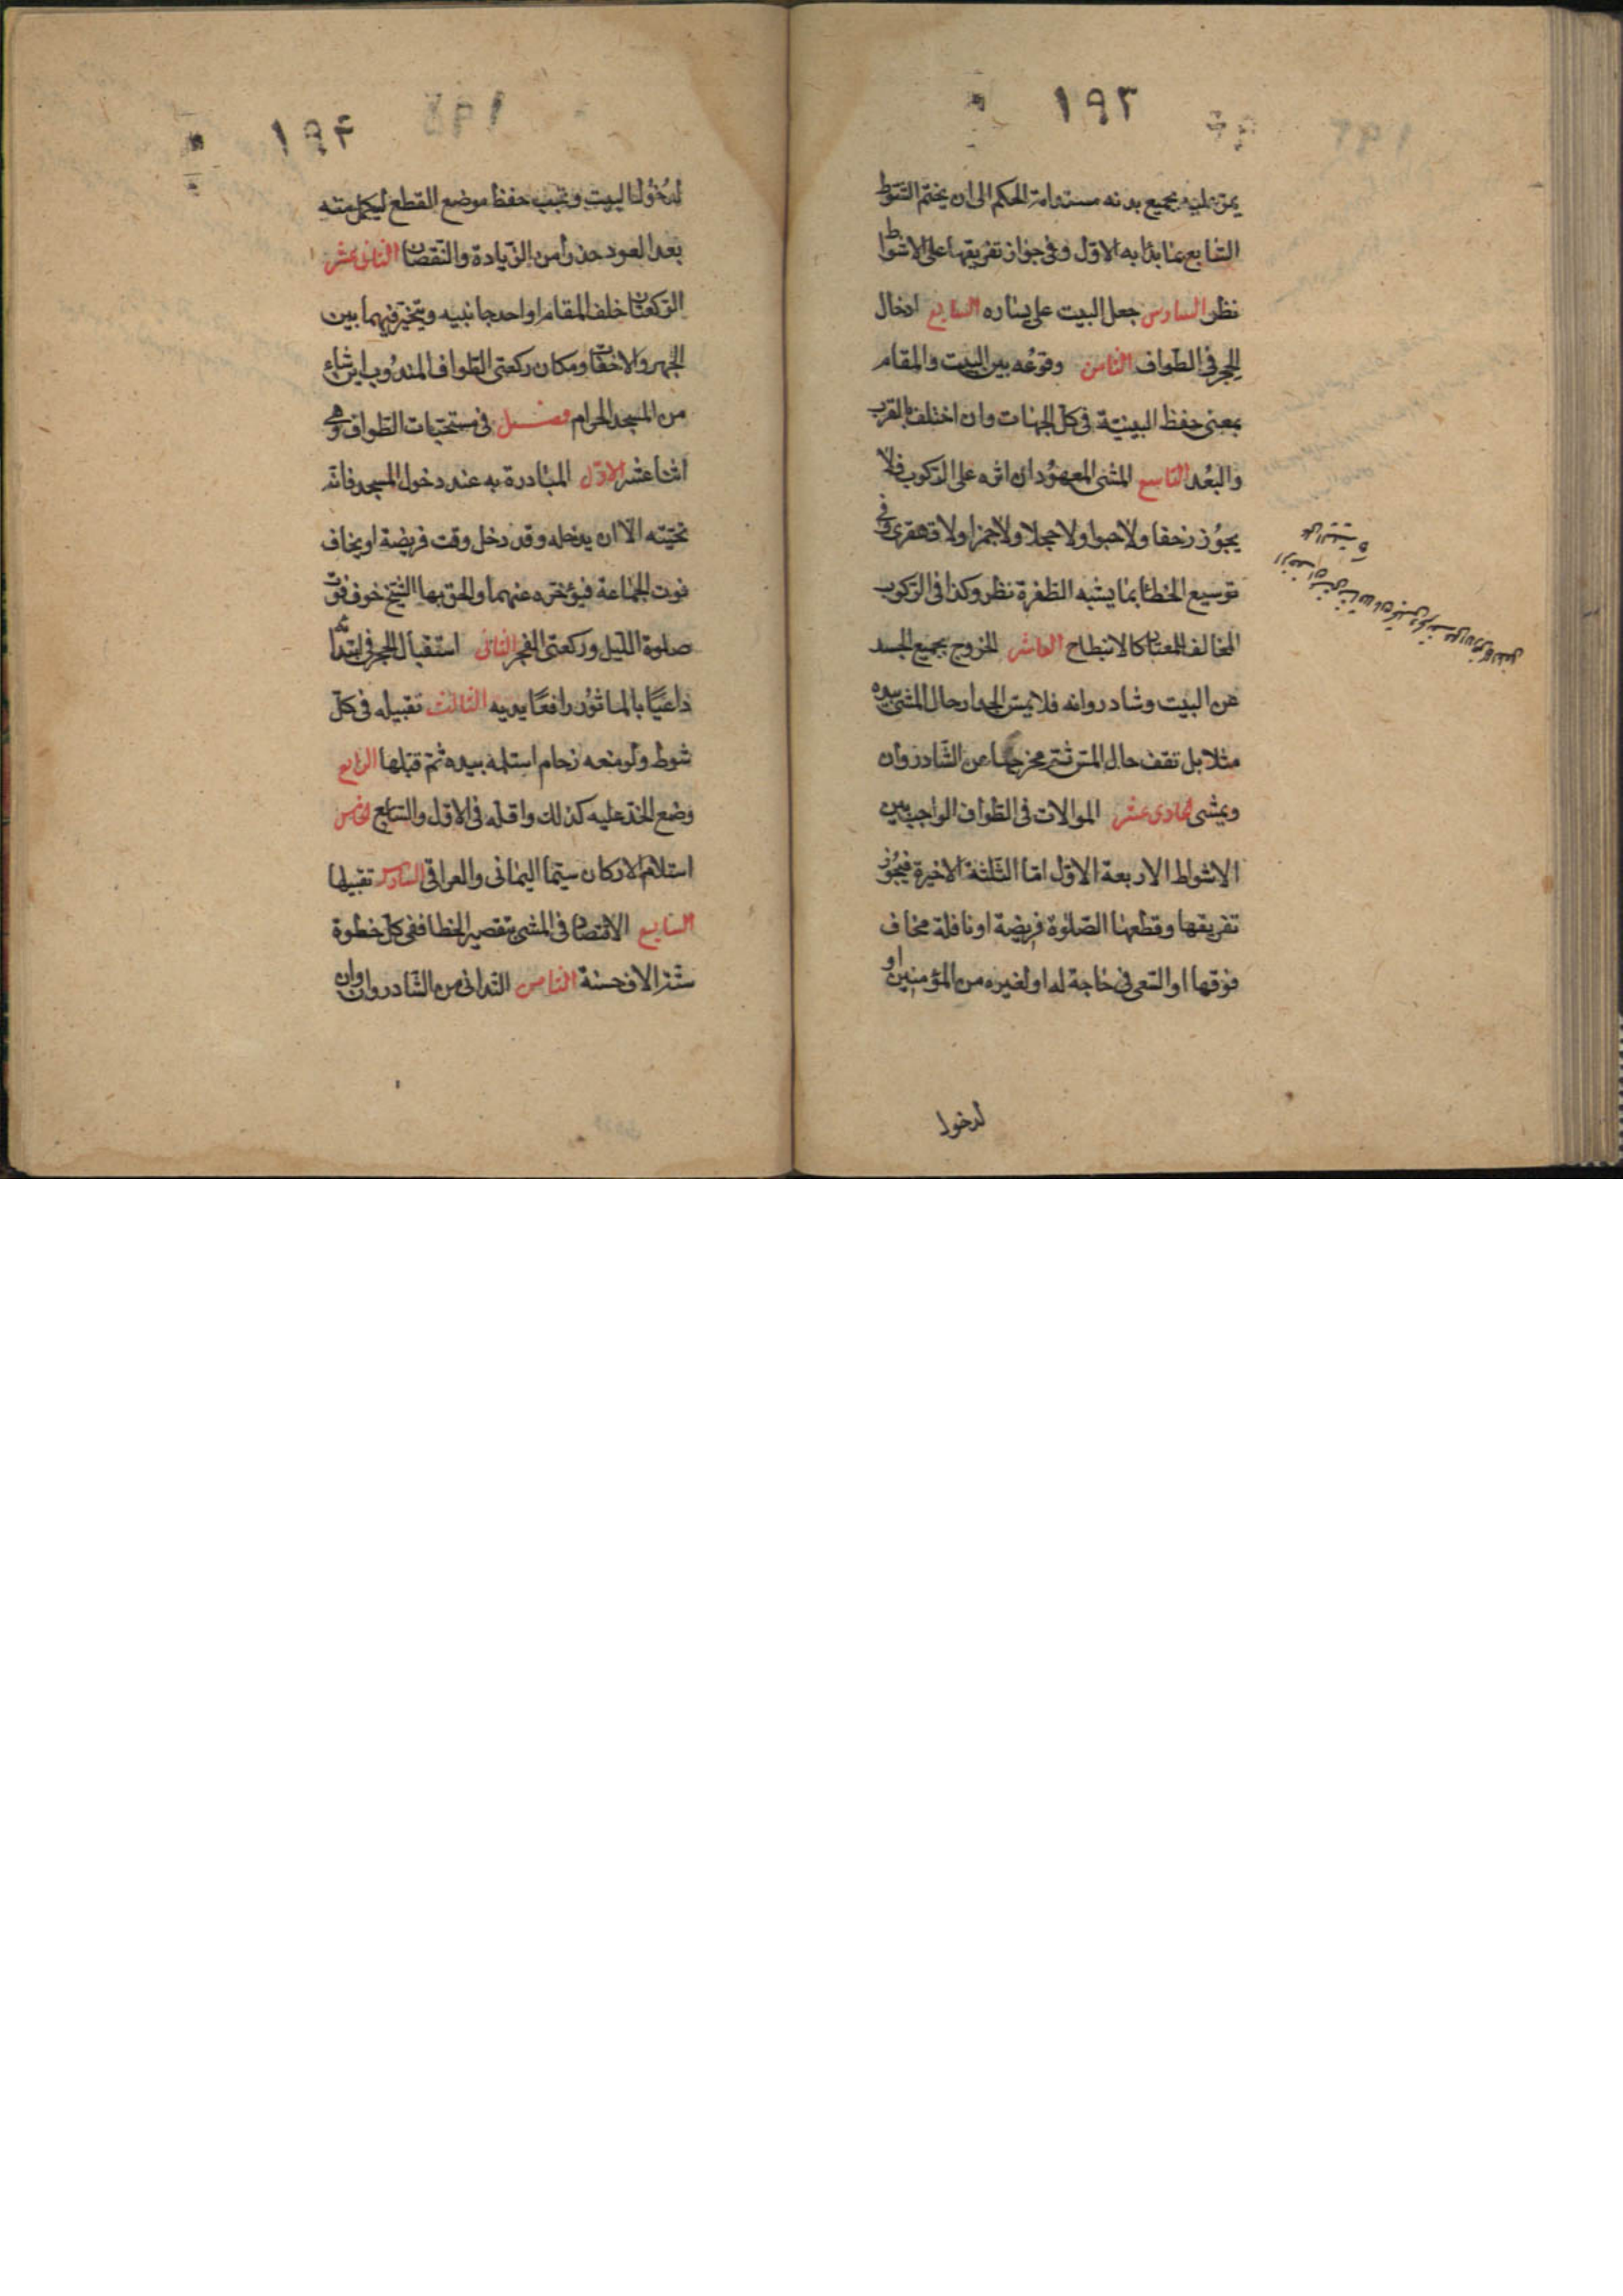 ١٩٣
يمر عليه بجميع بدنه مستدامة الحكم الى ان يختم الشوط
السابع بما بدأ به الاول وفى جواز تفريقها على الاشواط
نظر السادس جعل البيت على يساره السابع ادخال
الحجر فى الطواف الثامن وقوعه بين البيت والمقام
بمعنى حفظ البينيّة فى كل الجهات وان اختلف بالقرب
والبُعد التاسع المشى المعهود ان اثره على الركوب فلا
يجوز زحفا ولا حبوا ولا حجلا ولا جمزا ولا قهقرى وفى
توسيع الخطا بما يشبه الظفرة نظر وكذا فى الركوب
المخالف المعتاد كالانبطاح العاشر الخروج بجميع الجسد
عن البيت وشادروانه فلا يمس الجدار حال المشى بيده
مثلا بل تقف حال المس ثم يخرجها عن الشادروان
ويمشى الحادى عشر الموالات فى الطواف الواجب بين
الاشواط الاربعة الاول امّا الثلثة الاخيرة فيجوز
تفريقها وقطعها الصلوة فريضة او نافلة مخاف
فوتها او السعى فى حاجة له او لغيره من المؤمنين او
لدخول
١٩٤
لدخول البيت ويجب حفظ موضع القطع ليكمل منه
بعد العود حذرا من الزيادة والنقصان الثانى عشر
الركعتان خلف المقام او احد جانبيه ويتخير فيهما بين
الجهر والاخفات ومكان ركعتى الطواف المندوب اين شاء
من المسجد الحرام فصل فى مستحبات الطواف وهى
اثنا عشر الاول المبادرة به عند دخول المسجد فانه
تحيّته الا ان يدخله وقد دخل وقت فريضة او يخاف
فوت الجماعة فيؤخره عنهما والحق بها الشيخ خوف فوت
صلوة الليل وركعتى الفجر الثانى استقبال الحجر فى ابتدائه
داعيًا بالماثور رافعًا يديه الثالث تقبيله فى كل
شوط ولو منعه زحام استلمه بيده ثم قبلها الرابع
وضع الخد عليه كذلك واقله فى الاول والسابع الخامس
استلام الاركان سيّما اليمانى والعراقى السادس تقبيلها
السابع الاقتصاد فى المشى بتقصير الخطا ففى كل خطوة
سبعة الاف حسنة الثامن التدانى من الشادروان وان